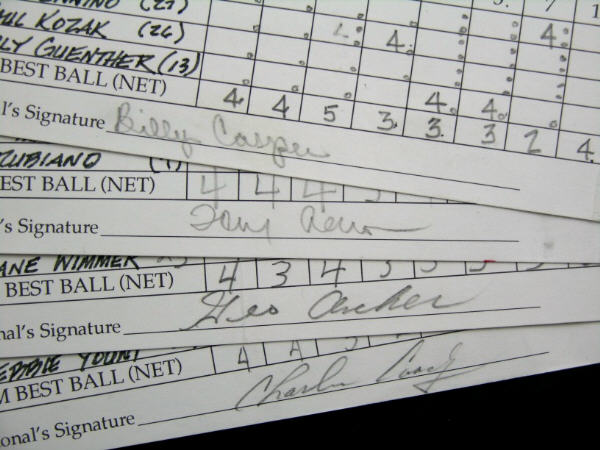 (27)
KOZAK (26) 4. 4.
GUENTHER (13)
BEST BALL (NET) 4. 4 5 3. 4. 3. 4. 3 2 4.
al's Signature Billy Casper
ZUBIANO
EST BALL (NET) 4 4 4
's Signature
ANE WIMMER
BEST BALL (NET) 4 3 4 3 3 3
nal's Signature Geo Archer
EDDIE YOUNT
M BEST BALL (NET) 4 4 3
onal's Signature Charlie Coody